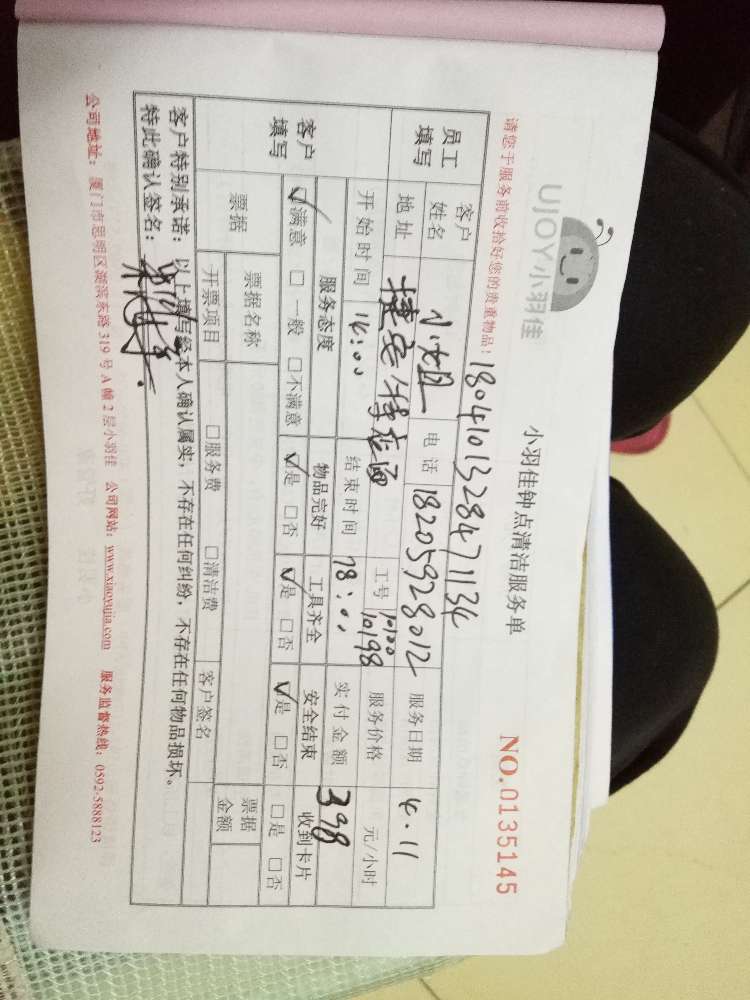 UJOY小羽佳
小羽佳钟点清洁服务单
NO.0135145
请您于服务前收拾好您的贵重物品！ 1804101328471134
员工填写 客户姓名 小姐 电话 18205928012 服务日期 4.11
地址 工号 10100 10198 服务价格 元/小时
开始时间 14:00 结束时间 18:00 实付金额 398
客户填写 服务态度 物品完好 工具齐全 安全结束 收到卡片
☑满意 □一般 □不满意 ☑是 □否 ☑是 □否 ☑是 □否 □是 □否
票据 票据名称 票据金额
开票项目 □服务费 □清洁费 客户签名
客户特别承诺：以上填写经本人确认属实，不存在任何纠纷，不存在任何物品损坏。
特此确认签名：
公司地址：厦门市思明区湖滨东路319号A幢2层小羽佳 公司网站：www.xiaoyujia.com 服务监督热线：0592-5888123